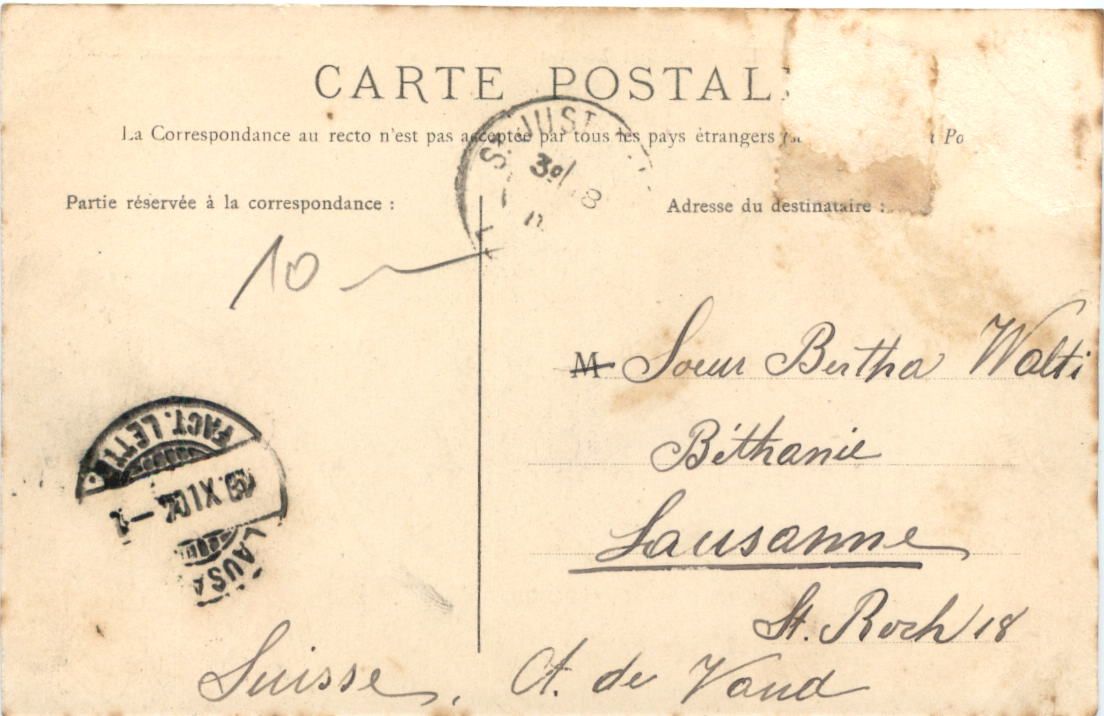 CARTE POSTAL
La Correspondance au recto n'est pas acceptée par tous les pays étrangers
Partie réservée à la correspondance :
Adresse du destinataire :
ST JUST
10
M Soeur Bertha Walti
Béthanie
Lausanne
St. Roch 18
Suisse, Ct. de Vaud
FACT. LETT
XI
LAUSA